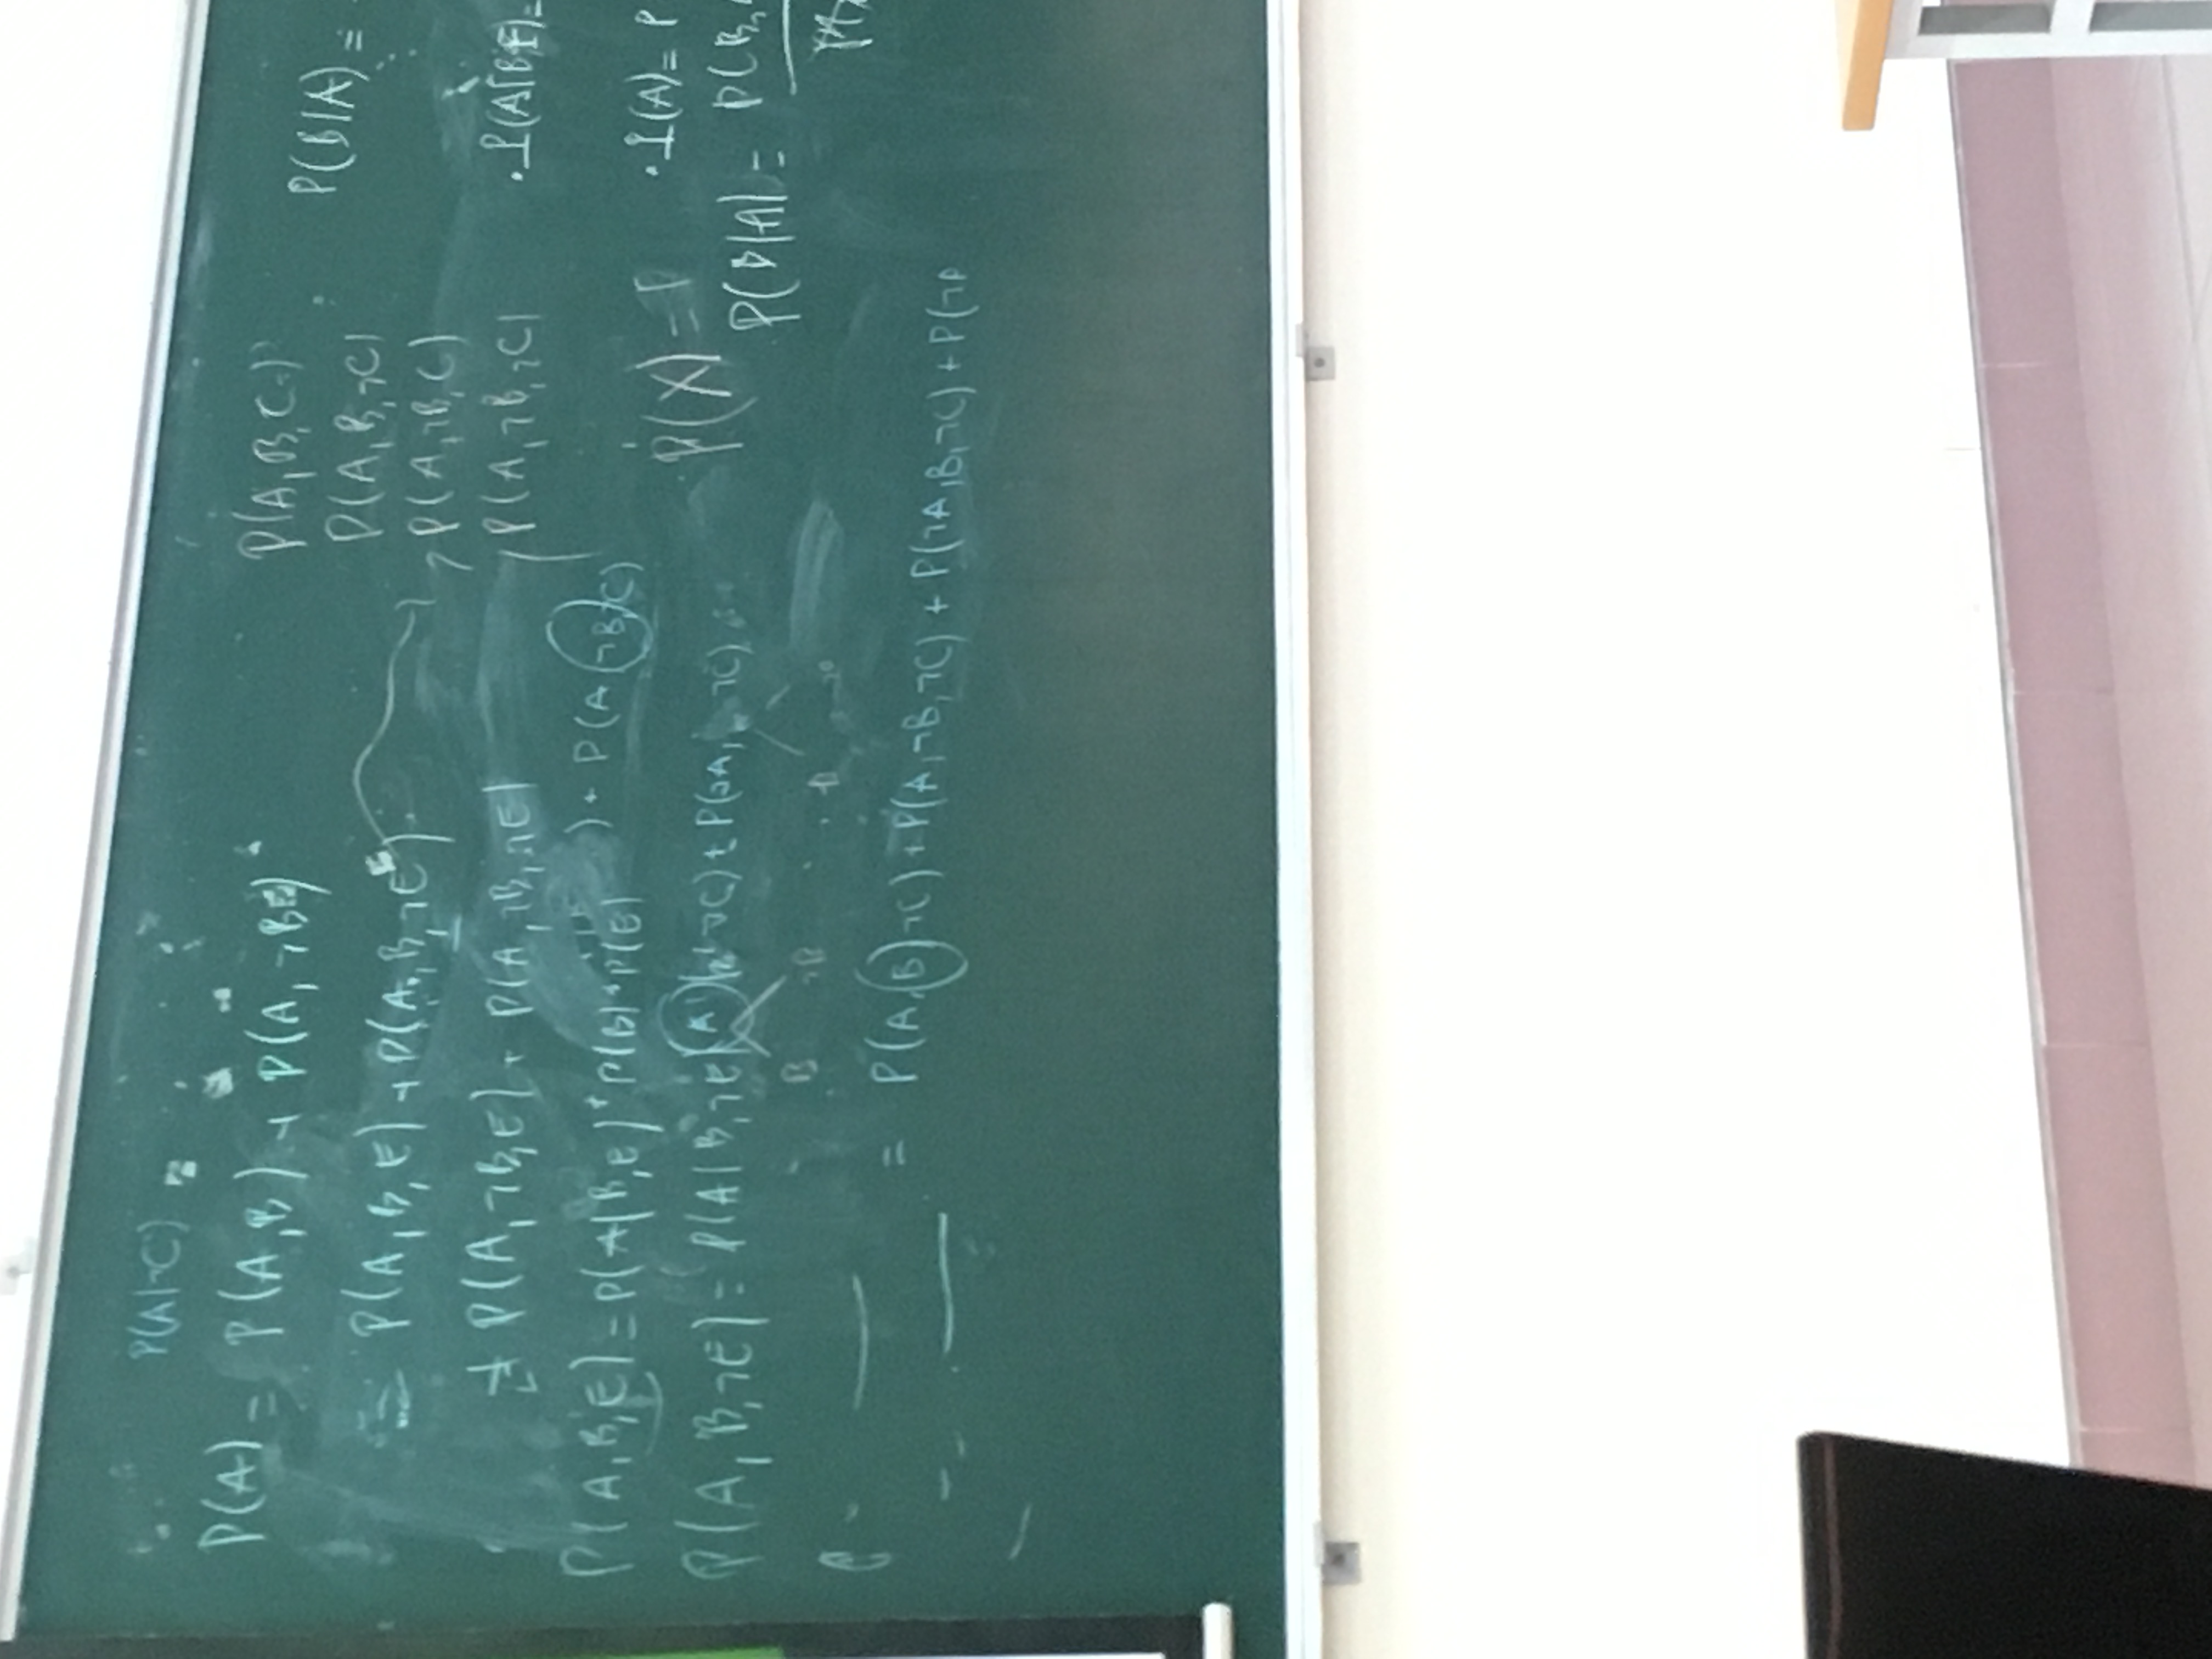 P(A|¬C)
P(A) = P(A,B) + P(A,¬BE)
= P(A,B,E) + P(A,B,¬E)
+ P(A,¬B,E) + P(A,¬B,¬E)
P(A,B,E) = P(A|B,E) * P(B) * P(E)
) + P(A ¬B,C)
P(A,B,¬E) = P(A|B,¬E
A
¬C) + P(¬A, ¬C)
B ¬B
= P(A,B,¬C) + P(A,¬B,¬C) + P(¬A,B,¬C) + P(¬A
P(A,B,C)
P(A,B,¬C)
P(A,¬B,C)
P(A,¬B,¬C)
P(X) = P
P(B|A) =
P(A|B,E) =
P(A) = P
P(B|A) = P(B,